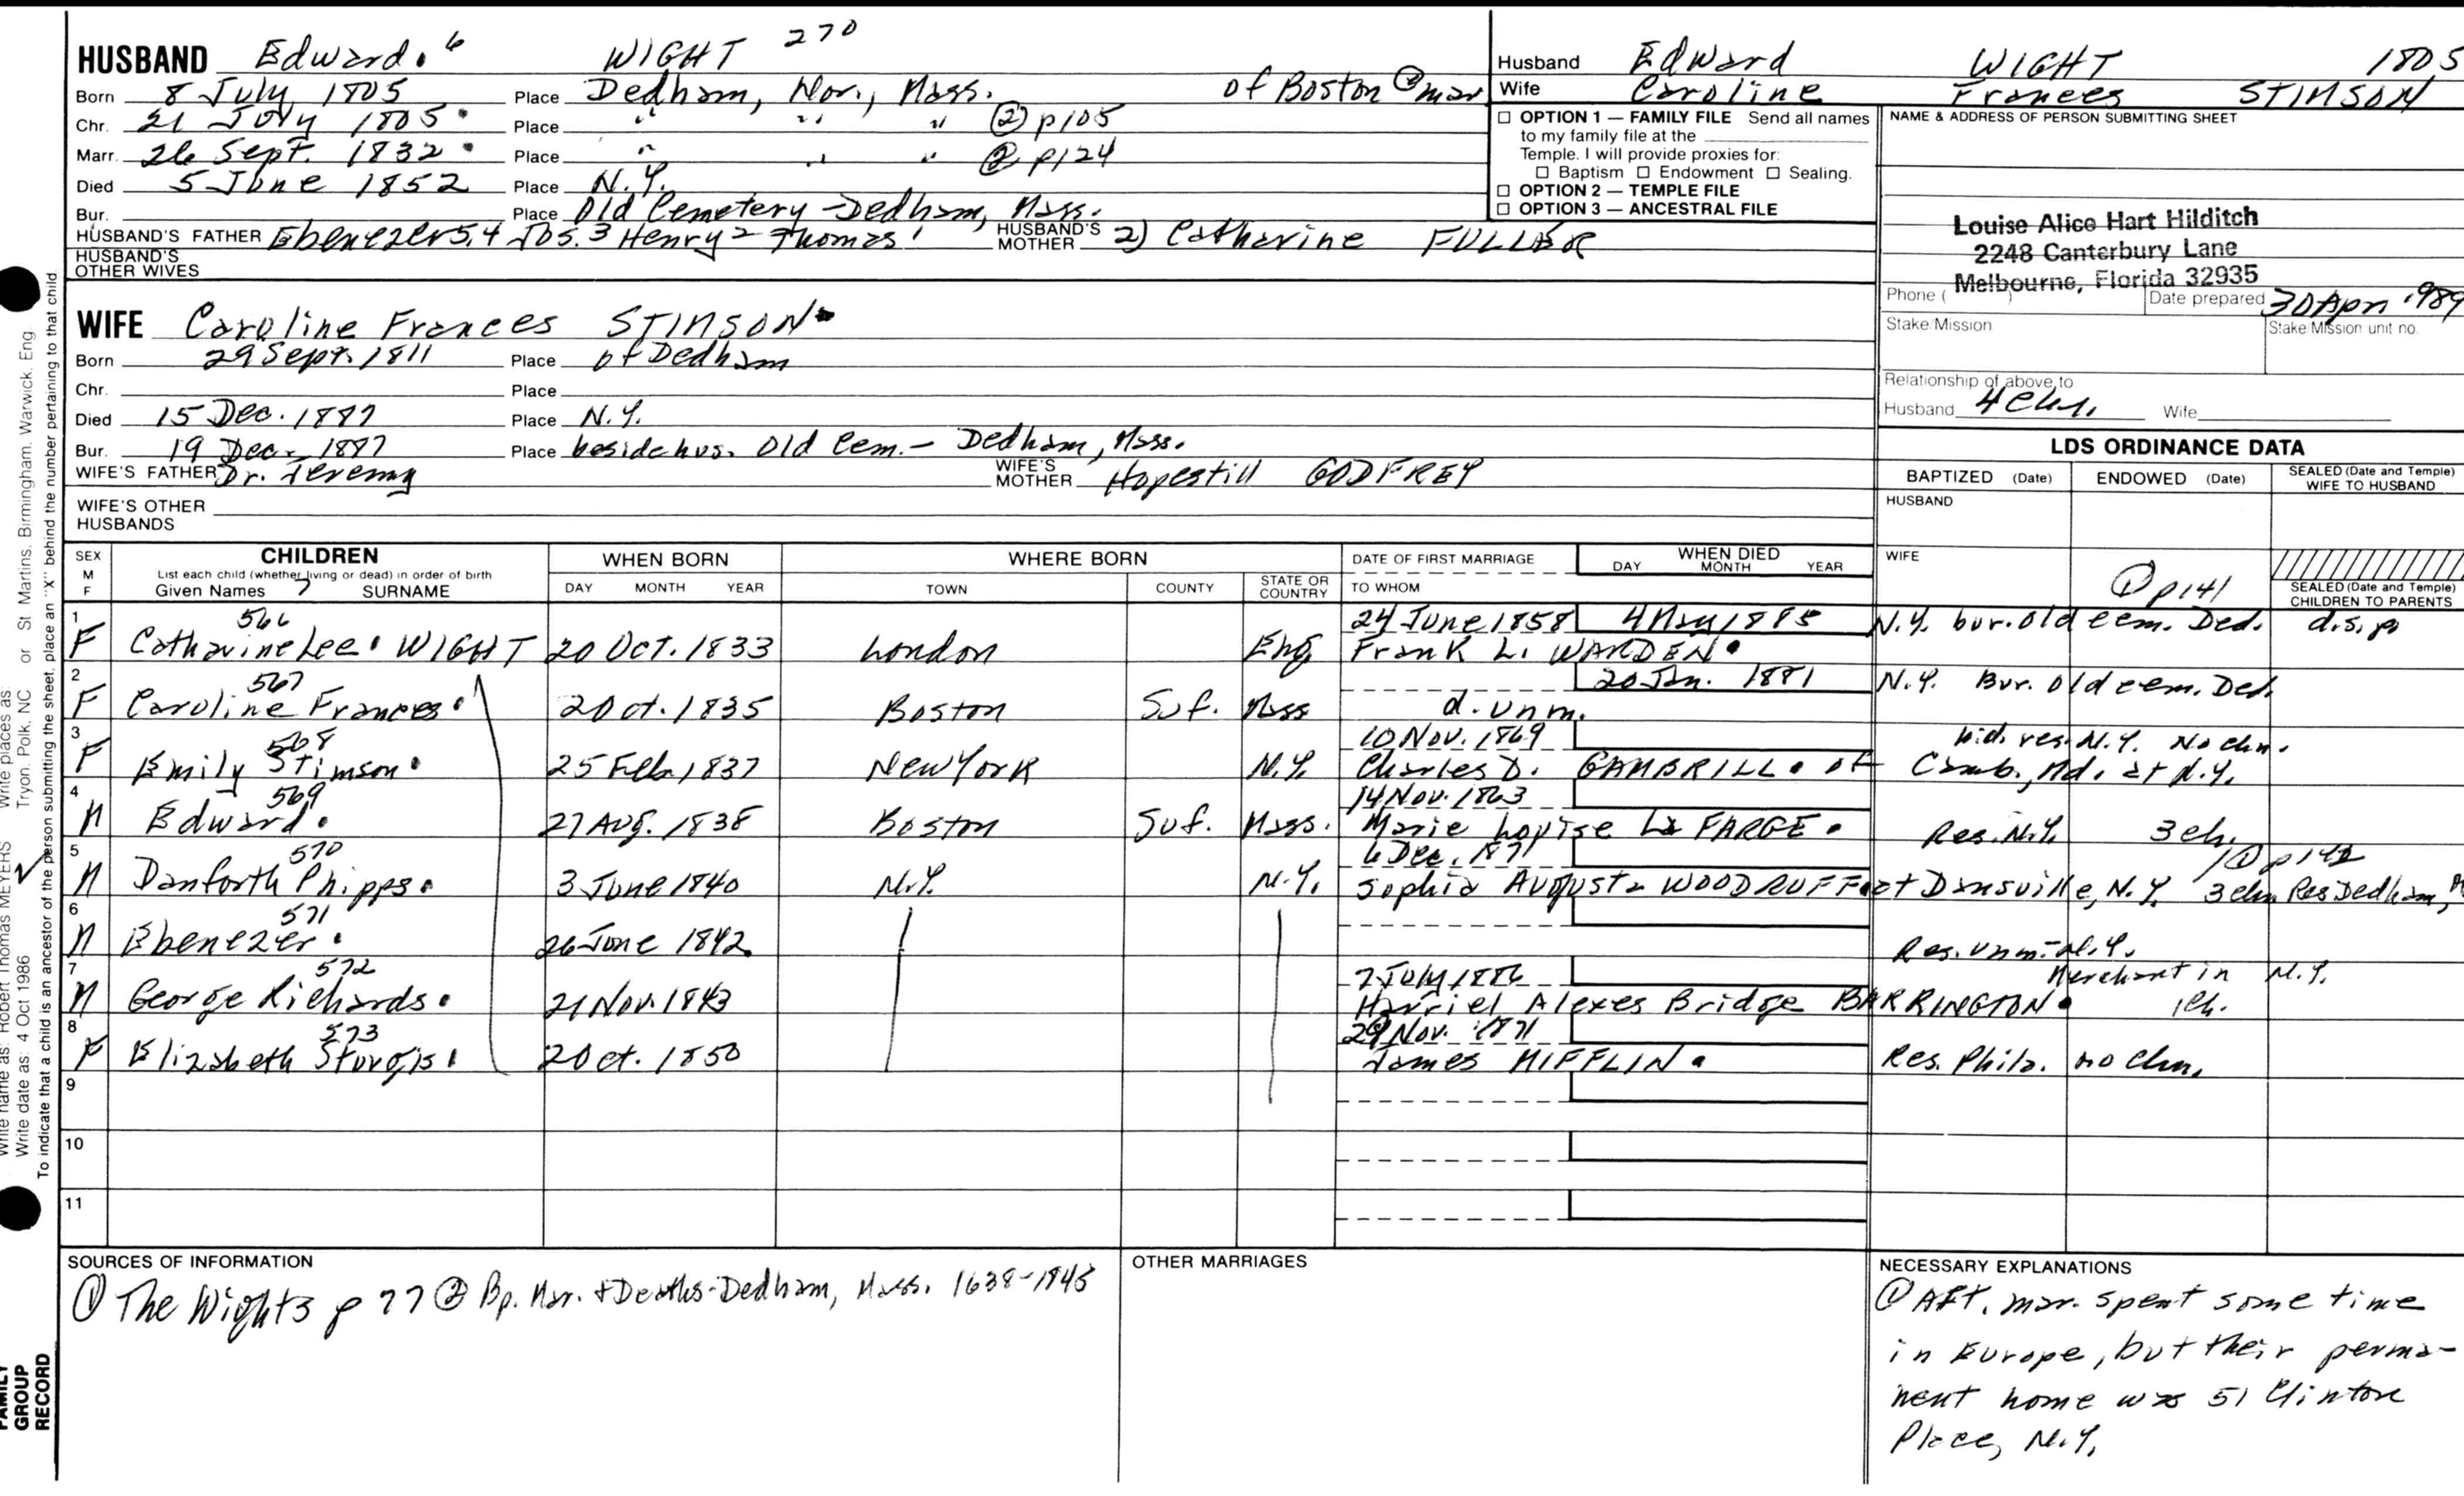 HUSBAND Edward.6 WIGHT 270
Born 8 July 1805 Place Dedham, Nor., Mass. of Boston @ mar
Chr. 21 July 1805. Place " " " ② p105
Marr. 26 Sept. 1832. Place " " " @ p124
Died 5 June 1852 Place N.Y.
Bur. Place Old Cemetery - Dedham, Mass.
HUSBAND'S FATHER Ebenezer5,4 Jos.3 Henry2 Thomas1 HUSBAND'S MOTHER 2) Catharine FULLER
HUSBAND'S OTHER WIVES
Husband Edward WIGHT 1805
Wife Caroline Frances STIMSON
☐ OPTION 1 — FAMILY FILE Send all names
to my family file at the
Temple. I will provide proxies for:
☐ Baptism ☐ Endowment ☐ Sealing.
☐ OPTION 2 — TEMPLE FILE
☐ OPTION 3 — ANCESTRAL FILE
NAME & ADDRESS OF PERSON SUBMITTING SHEET
Louise Alice Hart Hilditch
2248 Canterbury Lane
Melbourne, Florida 32935
Phone ( ) Date prepared 30 Apr 1989
Stake/Mission Stake/Mission unit no.
Relationship of above to
Husband Wife
WIFE Caroline Frances STIMSON.
Born 29 Sept. 1811 Place of Dedham
Chr. Place
Died 15 Dec. 1887 Place N.Y.
Bur. 19 Dec. 1887 Place beside hus. Old Cem. - Dedham, Mass.
WIFE'S FATHER Dr. Jeremy WIFE'S MOTHER Hopestill GODFREY
WIFE'S OTHER HUSBANDS
LDS ORDINANCE DATA
BAPTIZED (Date) ENDOWED (Date) SEALED (Date and Temple) WIFE TO HUSBAND
HUSBAND
WIFE ① p141
SEALED (Date and Temple) CHILDREN TO PARENTS
SEX M F
CHILDREN
List each child (whether living or dead) in order of birth
Given Names 7 SURNAME
WHEN BORN
DAY MONTH YEAR
WHERE BORN
TOWN COUNTY STATE OR COUNTRY
DATE OF FIRST MARRIAGE
TO WHOM
WHEN DIED
DAY MONTH YEAR
1 566 24 June 1858 4 May 1885 N.Y. bur. old cem. Ded. d.s.p
F Catharine Lee. WIGHT 20 Oct. 1833 London Eng Frank L. WARDEN.
2 567 20 Jan. 1881 N.Y. Bur. old cem. Ded.
F Caroline Frances. 2 Oct. 1835 Boston Suf. Mass d. unm.
3 568 10 Nov. 1869 wid. res. N.Y. No chn.
F Emily Stimson. 25 Feb. 1837 New York N.Y. Charles D. GAMBRILL. of Camb., Md. at N.Y.
4 569 14 Nov. 1863
M Edward. 27 Aug. 1838 Boston Suf. Mass. Marie Louise La FARGE. Res. N.Y. 3 ch.
5 570 6 Dec. 1871 ① p142
M Danforth Phipps. 3 June 1840 N.Y. N.Y. Sophia Augusta WOODRUFF at Dansville, N.Y. 3 chn Res Dedham,
6 571
M Ebenezer. 26 June 1842 Res. unm. N.Y.
7 572 7 July 1886 Merchant in N.Y.
M George Richards. 21 Nov. 1843 Harriel Alexes Bridge BARRINGTON. 1 ch.
8 573 29 Nov. 1871
F Elizabeth Sturgis. 2 Oct. 1850 James MIFFLIN. Res. Phila. no chn.
9
10
11
SOURCES OF INFORMATION
① The Wights p 77 ② Bp. Mar. & Deaths - Dedham, Mass. 1638-1845
OTHER MARRIAGES
NECESSARY EXPLANATIONS
① Aft. mar. spent some time
in Europe, but their perma-
nent home was 51 Clinton
Place, N.Y.
Write name as: Robert Thomas MEYERS Write places as: Tryon, Polk, NC or St Martins, Birmingham, Warwick, Eng
Write date as: 4 Oct 1986
To indicate that a child is an ancestor of the person submitting the sheet, place an "X" behind the number pertaining to that child.
FAMILY
GROUP
RECORD